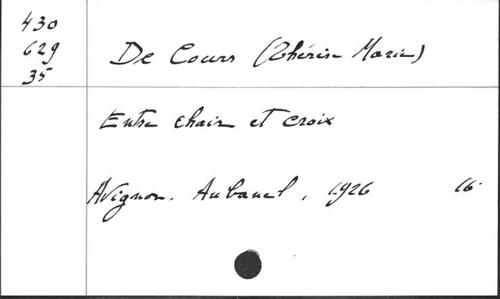 430
629
35
De Cours (Thérèse Marie)
Entre chair et croix
Avignon. Aubanel, 1926 16°